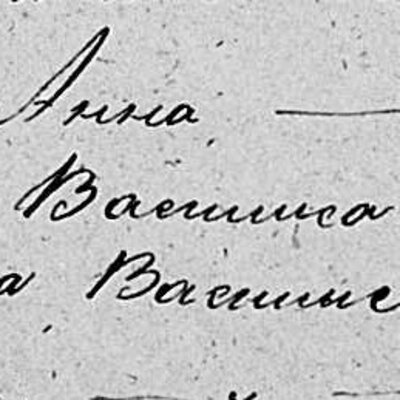 Анна —
Василиса
а Василис